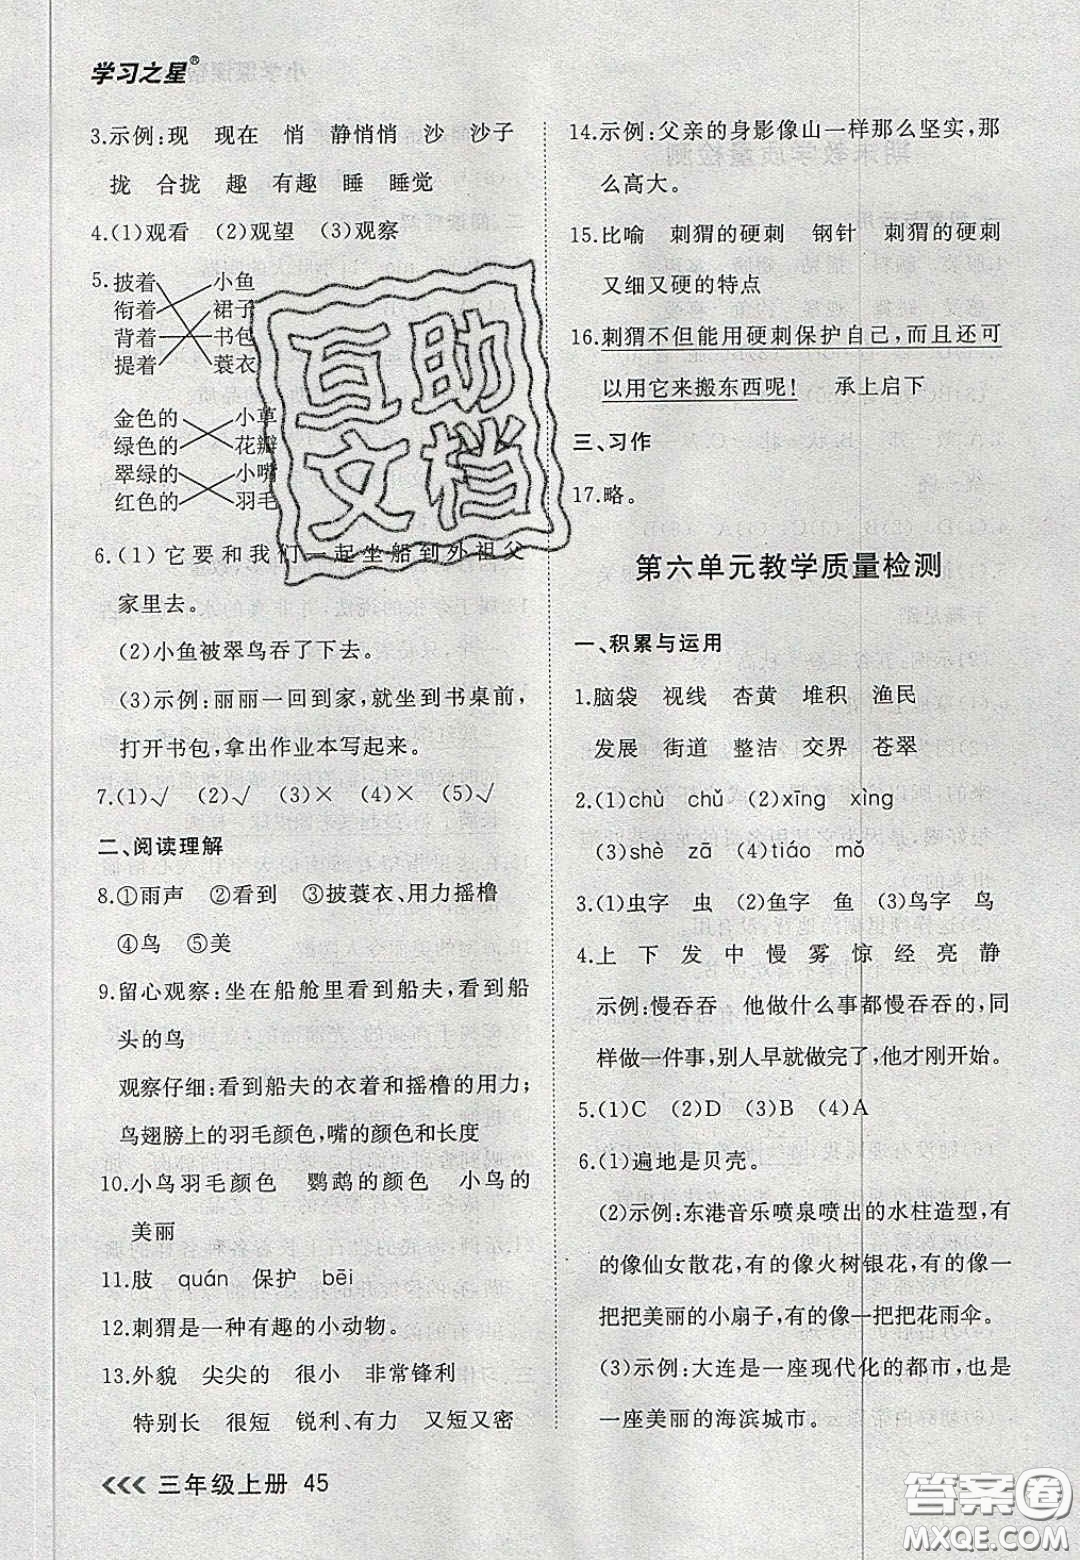 学习之星®
3.示例:现 现在 悄 静悄悄 沙 沙子
拢 合拢 趣 有趣 睡 睡觉
4.(1)观看 (2)观望 (3)观察
5.披着 小鱼
衔着 裙子
背着 书包
提着 蓑衣
金色的 小草
绿色的 花瓣
翠绿的 小嘴
红色的 羽毛
6.(1)它要和我们一起坐船到外祖父
家里去。
(2)小鱼被翠鸟吞了下去。
(3)示例:丽丽一回到家,就坐到书桌前,
打开书包,拿出作业本写起来。
7.(1)√ (2)√ (3)× (4)× (5)√
二、阅读理解
8.①雨声 ②看到 ③披蓑衣、用力摇橹
④鸟 ⑤美
9.留心观察:坐在船舱里看到船夫,看到船
头的鸟
观察仔细:看到船夫的衣着和摇橹的用力;
鸟翅膀上的羽毛颜色,嘴的颜色和长度
10.小鸟羽毛颜色 鹦鹉的颜色 小鸟的
美丽
11.肢 quán 保护 bēi
12.刺猬是一种有趣的小动物。
13.外貌 尖尖的 很小 非常锋利
特别长 很短 锐利、有力 又短又密
三年级上册 45
14.示例:父亲的身影像山一样那么坚实,那
么高大。
15.比喻 刺猬的硬刺 钢针 刺猬的硬刺
又细又硬的特点
16.刺猬不但能用硬刺保护自己,而且还可
以用它来搬东西呢! 承上启下
三、习作
17.略。
第六单元教学质量检测
一、积累与运用
1.脑袋 视线 杏黄 堆积 渔民
发展 街道 整洁 交界 苍翠
2.(1)chù chǔ (2)xīng xìng
(3)shè zā (4)tiáo mǒ
3.(1)虫字 虫 (2)鱼字 鱼 (3)鸟字 鸟
4.上 下 发 中 慢 雾 惊 经 亮 静
示例:慢吞吞 他做什么事都慢吞吞的,同
样做一件事,别人早就做完了,他才刚开始。
5.(1)C (2)D (3)B (4)A
6.(1)遍地是贝壳。
(2)示例:东港音乐喷泉喷出的水柱造型,有
的像仙女散花,有的像火树银花,有的像一
把把美丽的小扇子,有的像一把把花雨伞。
(3)示例:大连是一座现代化的都市,也是
一座美丽的海滨城市。
互助
文档
答案圈
MXQE.COM